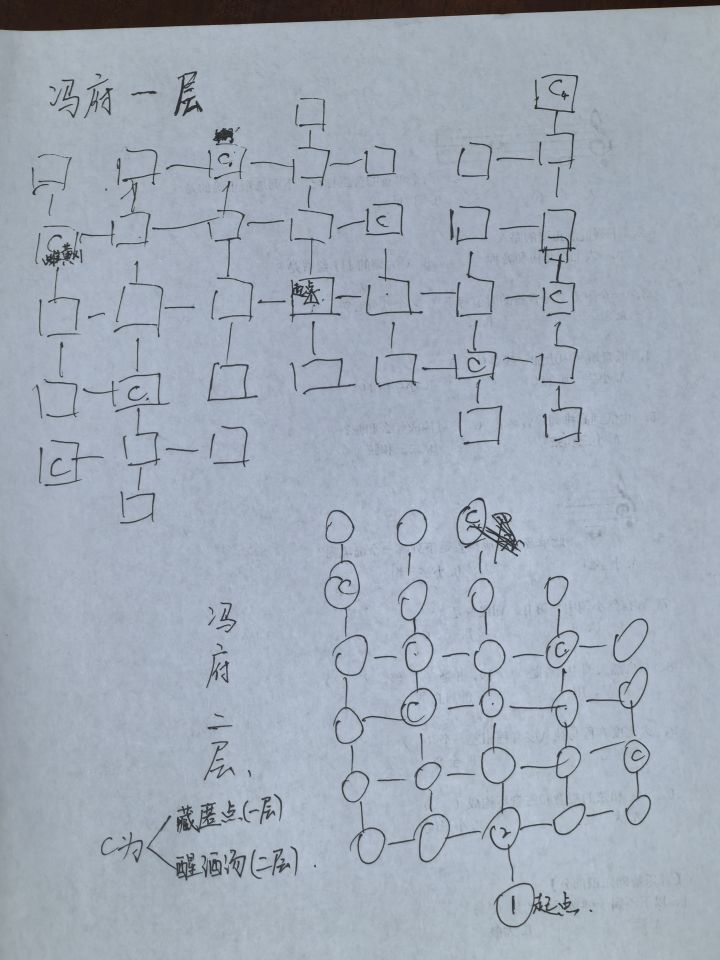 冯府一层
C4
C
C
C
雄黄
起点
C
C
C
C
C
冯府二层、
C
C
C
C
C
C
C
C2
1 起点.
C为
藏匿点(一层)
醒酒汤(二层).